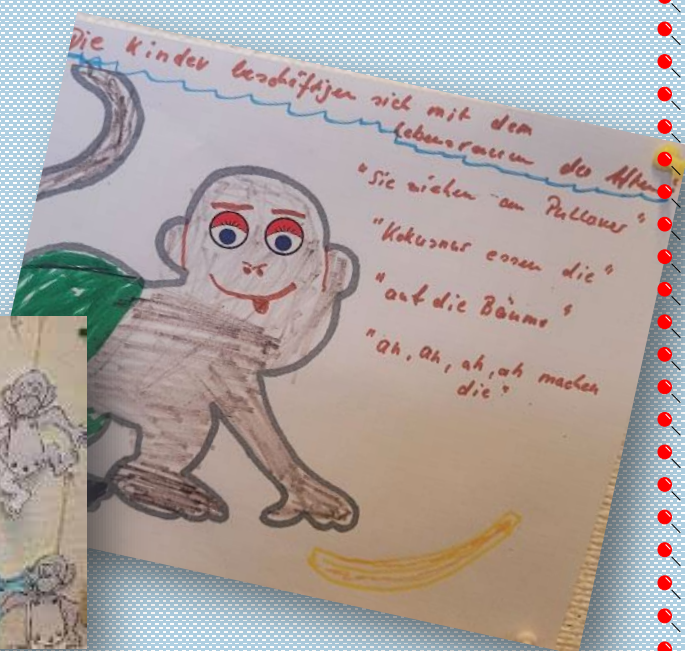 Die Kinder beschäftigen sich mit dem
Lebensraum der Affen
"Sie ziehen am Pullover"
"Kokusnus essen die"
"auf die Bäume"
"ah, ah, ah, ah machen
die"